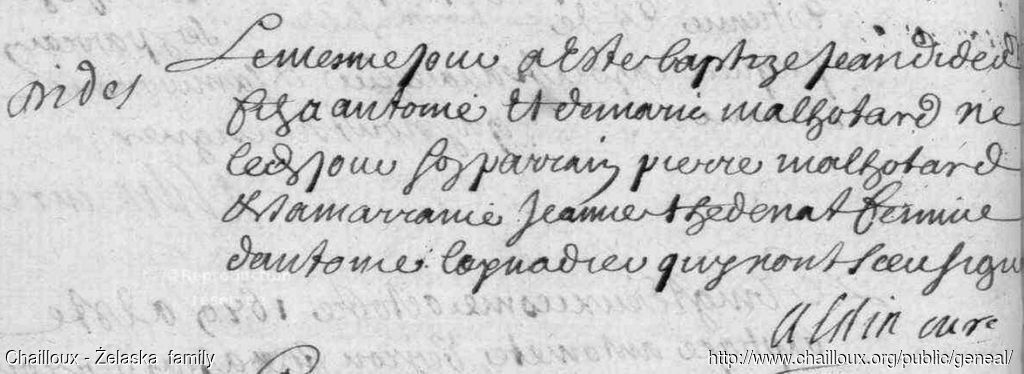 Lemesme jour a Este baptize Jean dides
dides
filz a antoine Et demarie malhotard ne
led jour sos parrain pierre malhotard
& sa marraine Jeanne thedenat femme
dantoine loynadier quy nont sceu signe
curé
Chailloux - Żelaska family
http://www.chailloux.org/public/geneal/